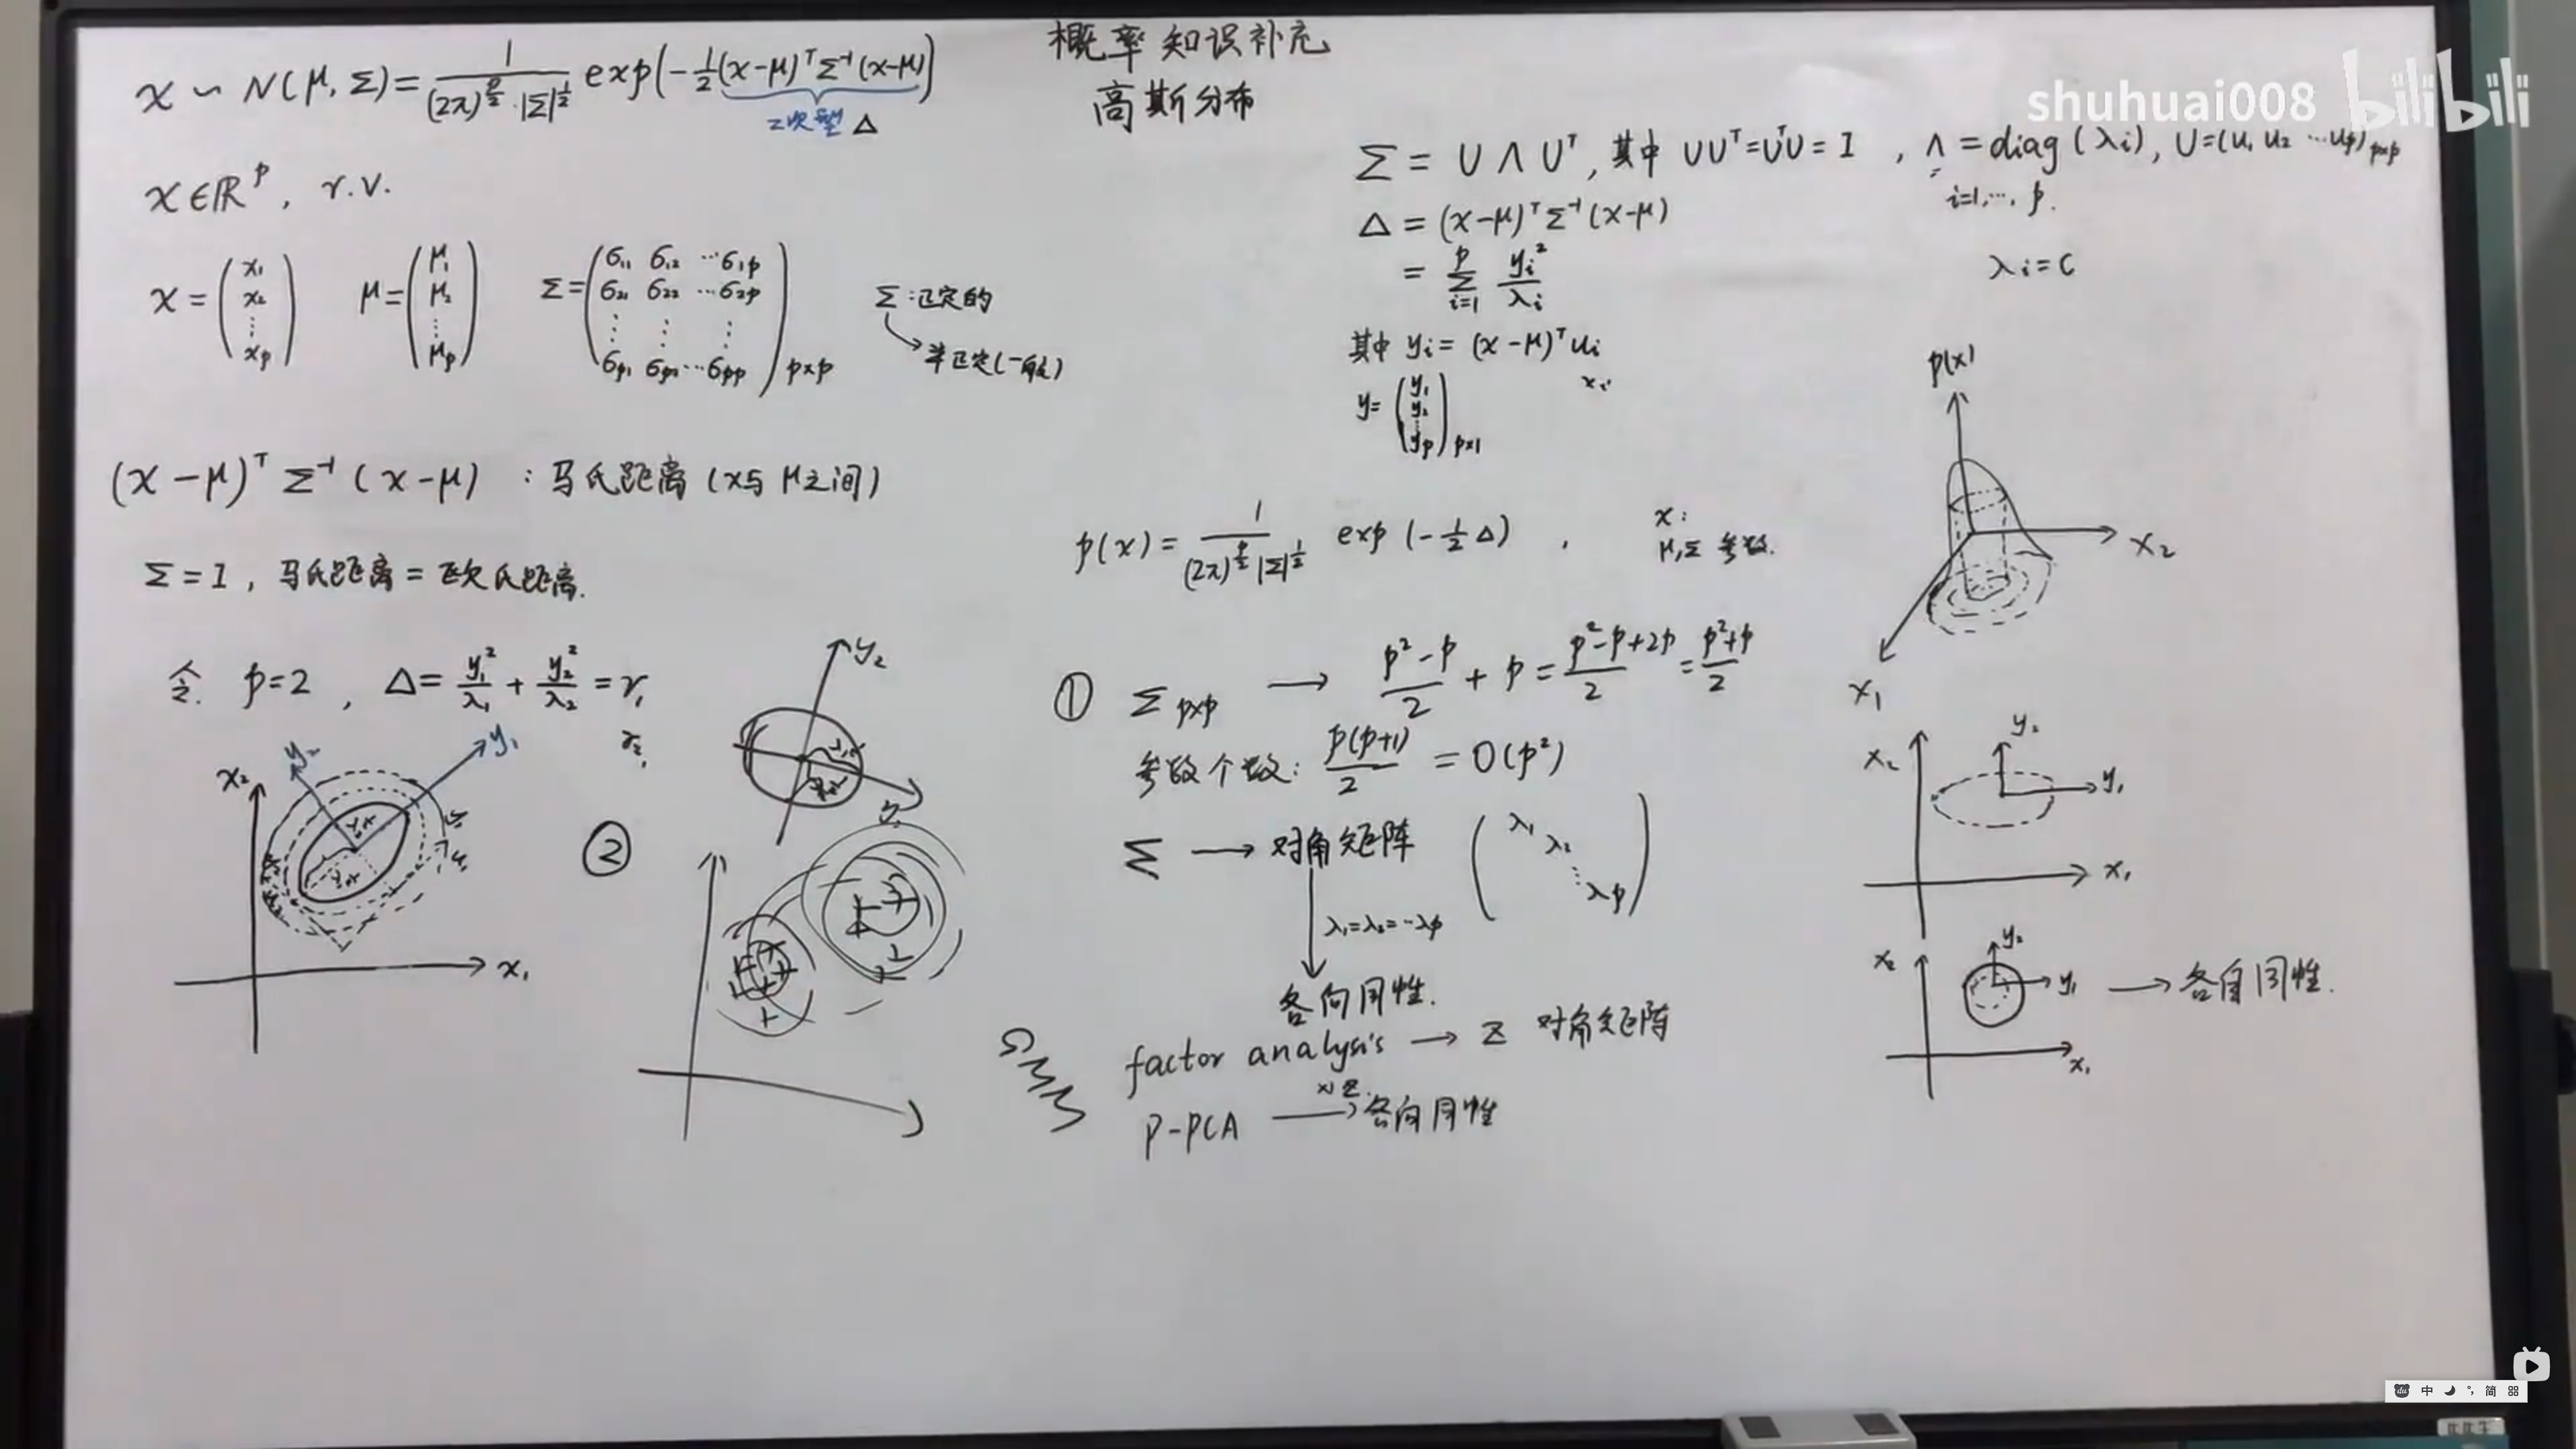 概率知识补充
高斯分布
x ~ N(μ, Σ) = 1/((2π)^(p/2)·|Σ|^(1/2)) exp(-1/2 (x-μ)ᵀ Σ⁻¹ (x-μ))
二次型 Δ
x ∈ ℝᵖ, r.v.
x = (x₁ x₂ ⋮ xₚ) μ = (μ₁ μ₂ ⋮ μₚ) Σ = (σ₁₁ σ₁₂ ⋯ σ₁ₚ
σ₂₁ σ₂₂ ⋯ σ₂ₚ
⋮ ⋮ ⋮
σₚ₁ σₚ₂ ⋯ σₚₚ) p×p
Σ: 正定的
半正定(一般)
(x-μ)ᵀ Σ⁻¹ (x-μ) : 马氏距离 (x与μ之间)
Σ = I, 马氏距离 = 欧氏距离.
令 p=2, Δ = y₁²/λ₁ + y₂²/λ₂ = r₁
r₂
x₂
y₂
y₁
x₁
y₂
②
shuhuai008 bilibili
Σ = U Λ Uᵀ, 其中 UUᵀ = UᵀU = I, Λ = diag(λᵢ), U = (u₁ u₂ ⋯ uₚ) p×p
i=1,⋯, p.
Δ = (x-μ)ᵀ Σ⁻¹ (x-μ)
= Σᵢ₌₁ᵖ yᵢ²/λᵢ
λᵢ = C
其中 yᵢ = (x-μ)ᵀ uᵢ
xᵢ
y = (y₁ y₂ ⋮ yₚ) p×1
p(x) = 1/((2π)^(p/2) |Σ|^(1/2)) exp(-1/2 Δ),
x:
μ,Σ 参数.
① Σ p×p → (p²-p)/2 + p = (p²-p+2p)/2 = (p²+p)/2
参数个数: p(p+1)/2 = O(p²)
Σ → 对角矩阵 (λ₁ λ₂ ⋱ λₚ)
λ₁=λ₂=⋯λₚ
各向同性.
factor analysis → z 对角矩阵
p-PCA → 各向同性
GMM
p(x)
x₂
x₁
x₂
y₂
y₁
x₁
x₂
y₂
y₁ → 各向同性.
x₁
中 简